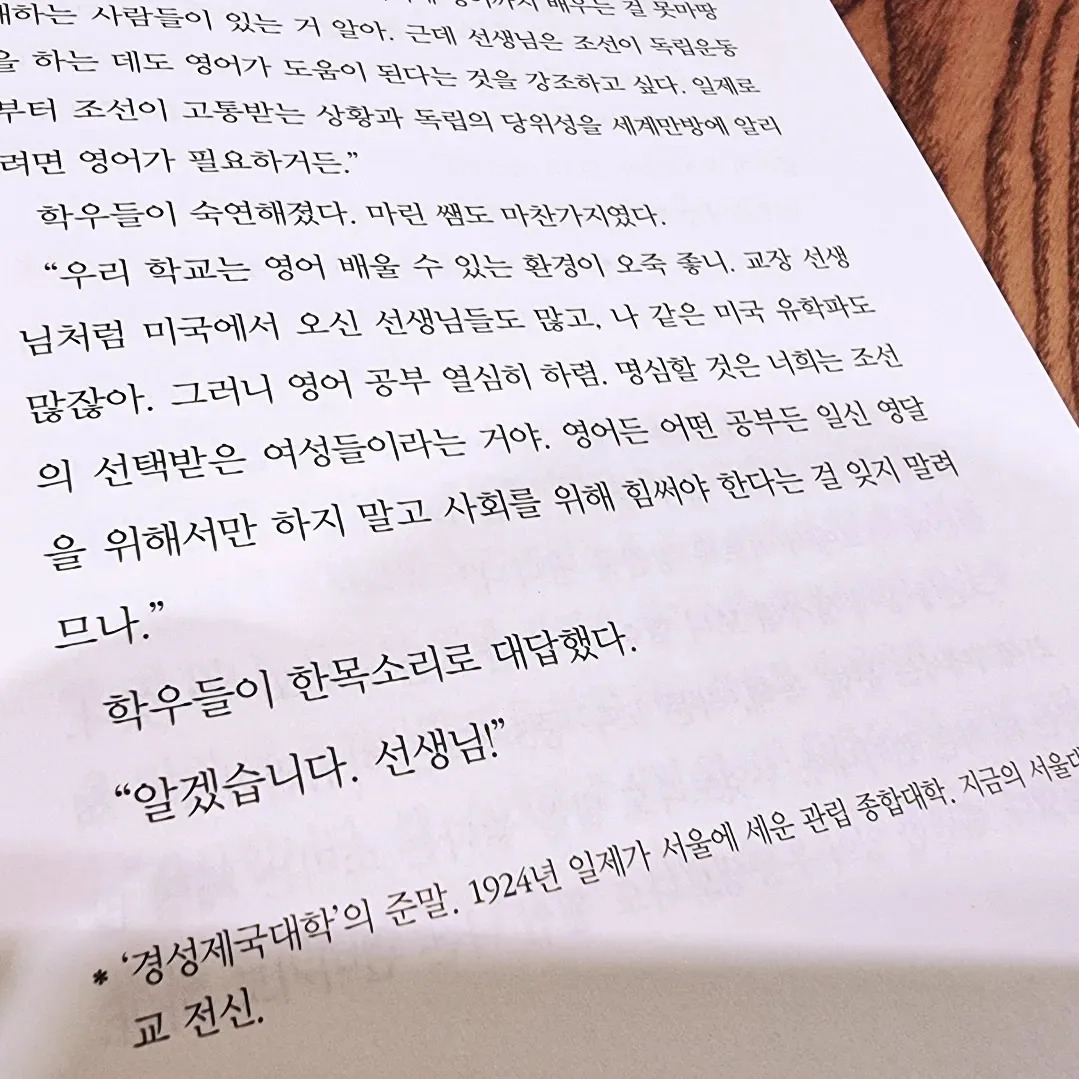 영어까지 배우는 걸 못마땅
해하는 사람들이 있는 거 알아. 근데 선생님은 조선이 독립운동
을 하는 데도 영어가 도움이 된다는 것을 강조하고 싶다. 일제로
부터 조선이 고통받는 상황과 독립의 당위성을 세계만방에 알리
려면 영어가 필요하거든.”
학우들이 숙연해졌다. 마린 쌤도 마찬가지였다.
“우리 학교는 영어 배울 수 있는 환경이 오죽 좋니. 교장 선생
님처럼 미국에서 오신 선생님들도 많고, 나 같은 미국 유학파도
많잖아. 그러니 영어 공부 열심히 하렴. 명심할 것은 너희는 조선
의 선택받은 여성들이라는 거야. 영어든 어떤 공부든 일신 영달
을 위해서만 하지 말고 사회를 위해 힘써야 한다는 걸 잊지 말려
므나.”
학우들이 한목소리로 대답했다.
“알겠습니다. 선생님!”
* ‘경성제국대학’의 준말. 1924년 일제가 서울에 세운 관립 종합대학. 지금의 서울대
교 전신.